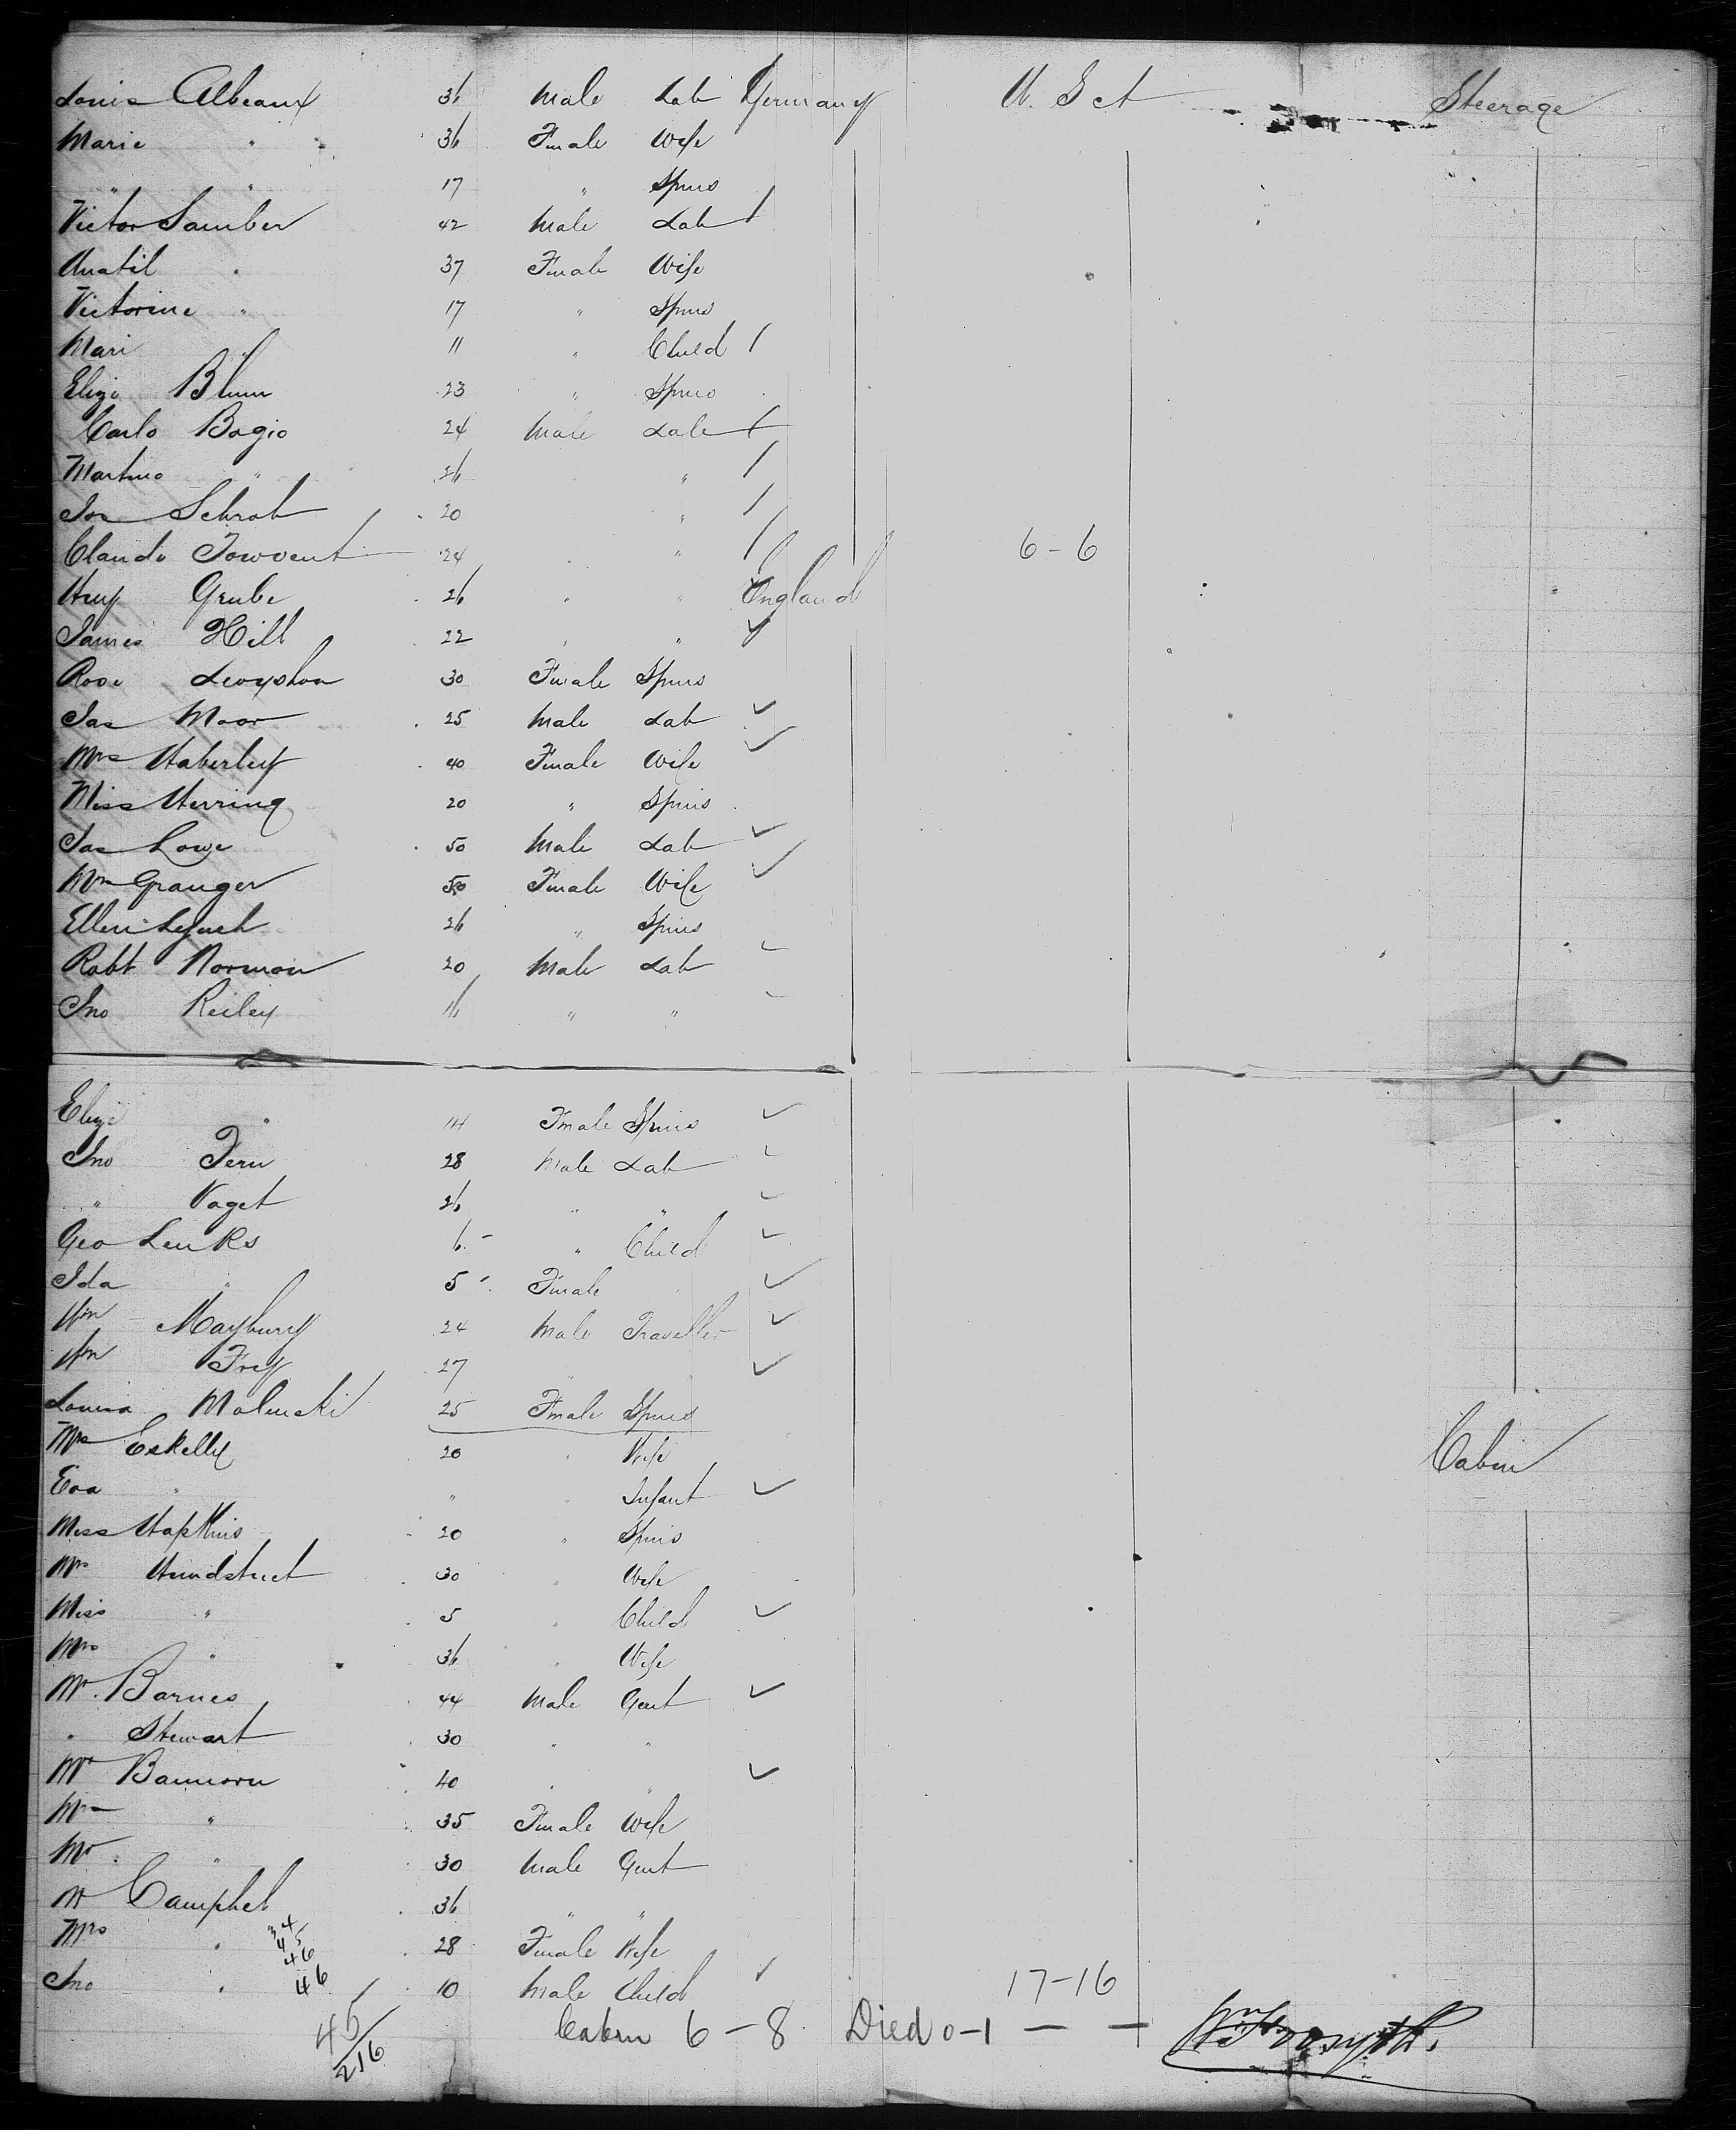 Louis Albeaux 36 Male Lab Germany U. S et Steerage
Marie " 36 Female Wife
" " 17 " Spins
Victor Samber 42 Male Lab
Anatil " 37 Female Wife
Victorine " 17 " Spins
Mari " 11 " Child
Eliza Blum 23 " Spins
Carlo Bogio 24 Male Lab
Martino " 26 "
Jos Schrob 20 "
Claude 24 " 6-6
Hny Grube 26 " " England
James Hill 22 " "
Rose 30 Female Spins
Jas Moor 25 Male Lab
Mrs Haberley 40 Female Wife
Miss Herring 20 " Spins
Jas Lowe 50 Male Lab
Mrs Granger 50 Female Wife
Ellen Lynch 26 " Spins
Robt Norman 20 Male Lab
Jno Reiley 16 " "
Eliza " 14 Female Spins
Jno Fern 28 Male Lab
" Vaget 26 " "
Geo Lenks 6 " Child
Ida " 5 Female "
Wm Maybury 24 Male Traveller
Wm Frey 27
Louisa Malinski 25 Female Spins
Mrs Eskelly 20 " Wife Cabin
Eva " " " Infant
Miss Hopkins 20 " Spins
Mrs 30 " Wife
Miss " 5 " Child
Mrs " 36 " Wife
Mr. Barnes 44 Male Gent
" Stewart 30 " "
Mr 40 " "
Mrs " 35 Female Wife
Mr " 30 Male Gent
Mr Campbel 36 " "
Mrs " 28 Female Wife
Jno " 10 Male Child 17-16
34
45
46
46
45
216
Cabin 6-8 Died 0-1 — — Wm Forsyth.